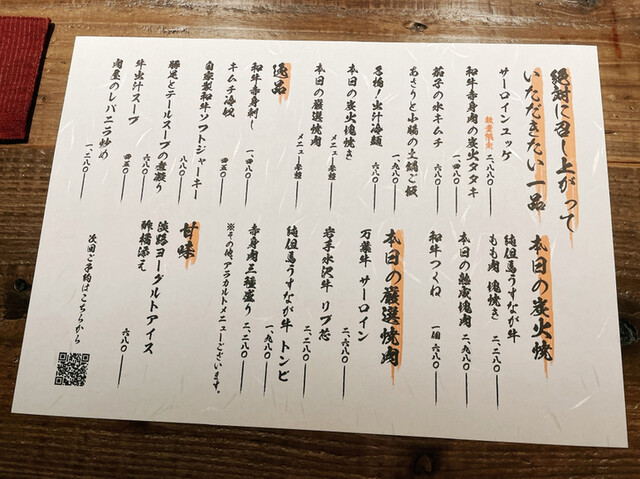 絶対に召し上がって
いただきたい一品
サーロインユッケ
数量限定
二、八八〇
和牛赤身肉の炭火タタキ
茄子の水キムチ
六八〇
あさりと小柱の土鍋ご飯
一、九八〇
冷麺
本日の炭火塊焼き
メニュー参照
本日の厳選焼肉
メニュー参照
逸品
和牛赤身刺し
一、四八〇
キムチ冷奴
四五〇
自家製和牛ソフトジャーキー
八八〇
豚足とテールスープの煮凝り
六八〇
牛出汁スープ
四五〇
肉屋のレバニラ炒め
一、二八〇
本日の炭火焼
純但馬うすなが牛
もも肉 塊焼き
二、二八〇
本日の熟成塊肉
二、九八〇
和牛つくね
一個 六八〇
本日の厳選焼肉
万葉牛 サーロイン
二、六八〇
岩手水沢牛 リブ芯
二、二八〇
純但馬うすなが牛 トンビ
一、九八〇
赤身肉三種盛り
二、二八〇
※その他、アラカルトメニューございます。
甘味
淡路ヨーグルトアイス
酢橘添え
六八〇
次回ご予約はこちらから